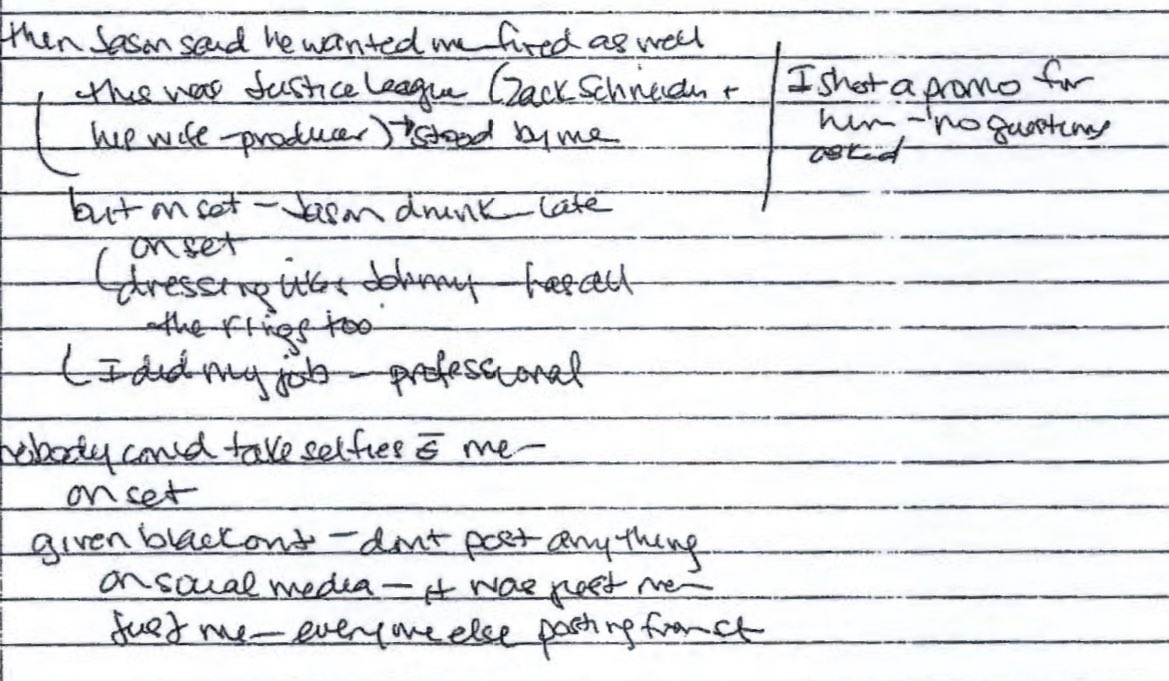 then Jason said he wanted me fired as well
this was Justice League (Zack Schneider +
his wife - producer) → stood by me
I shot a promo for
him - no questions
asked
but on set - Jason drunk - late
on set
dressing like Johnny - has all
the rings too
I did my job - professional
nobody could take selfies c̄ me -
on set
given blackout - dont post anything
on social media - it was just me -
just me - everyone else posting from set